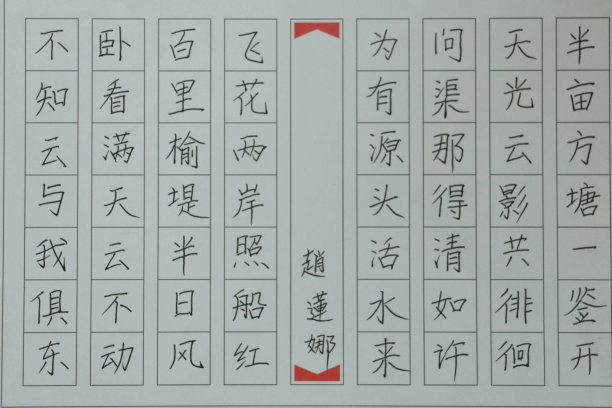 半亩方塘一鉴开
天光云影共徘徊
问渠那得清如许
为有源头活水来
趙蓮娜
飞花两岸照船红
百里榆堤半日风
卧看满天云不动
不知云与我俱东